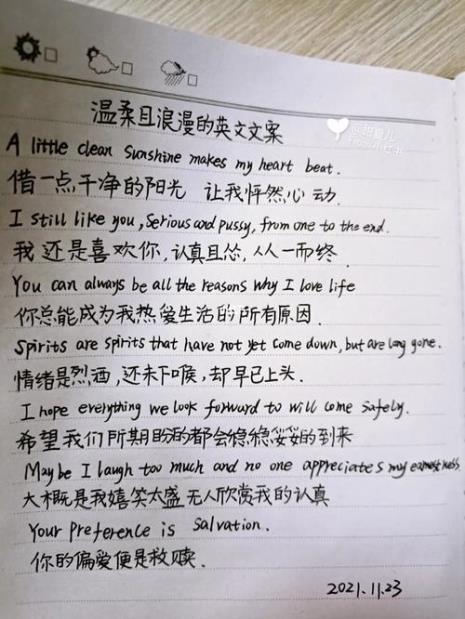 温柔且浪漫的英文文案
A little clean Sunshine makes my heart beat.
借一点干净的阳光 让我怦然心动.
I still like you, Serious and pussy, from one to the end.
我还是喜欢你,认真且怂,从一而终.
You can always be all the reasons why I love life
你总能成为我热爱生活的所有原因.
Spirits are spirits that have not yet come down, but are long gone.
情绪是烈酒,还未下喉,却早已上头.
I hope everything we look forward to will come safely.
希望我们所期盼的都会稳稳妥妥的到来
Maybe I laugh too much and no one appreciates my earnestness
大概是我嬉笑太盛 无人欣赏我的认真
Your preference is salvation.
你的偏爱便是救赎.
2021.11.23